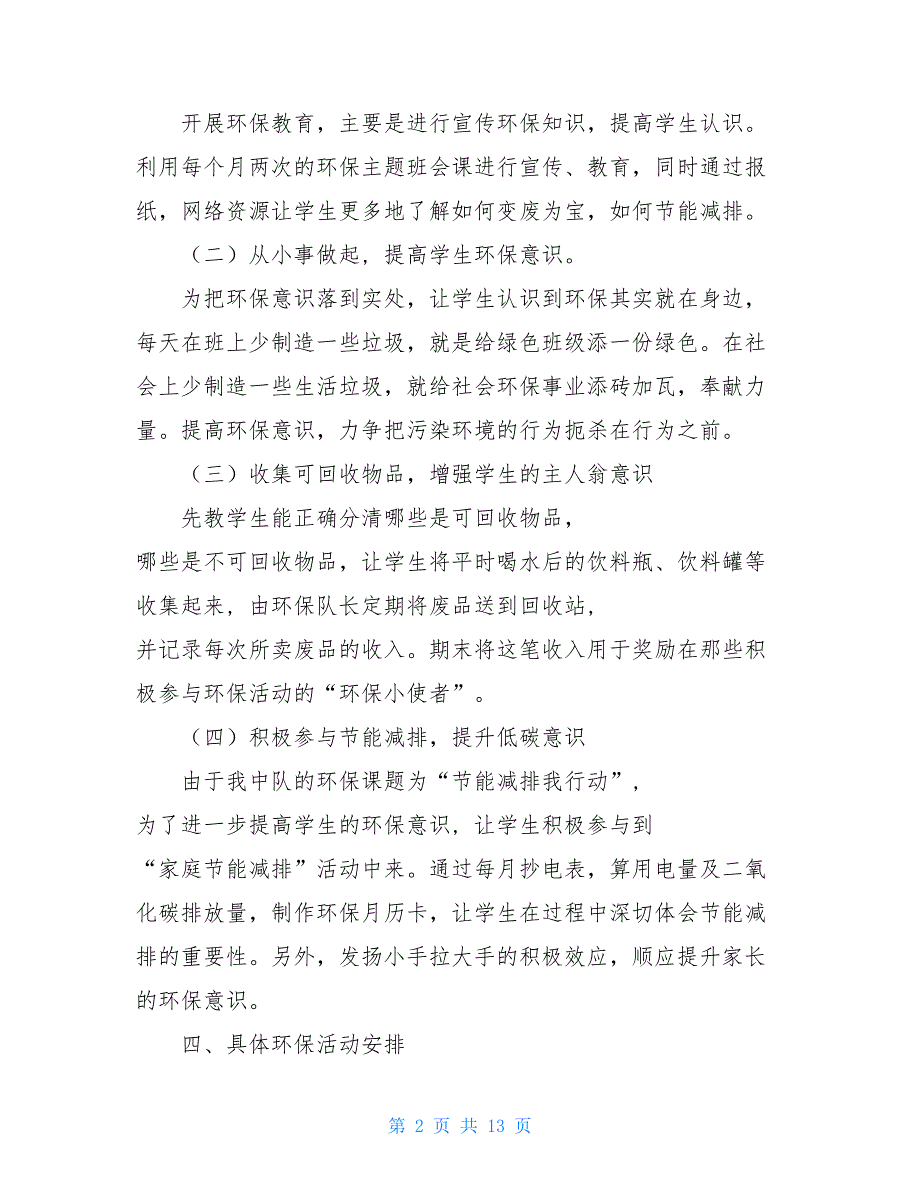 开展环保教育，主要是进行宣传环保知识，提高学生认识。
利用每个月两次的环保主题班会课进行宣传、教育，同时通过报
纸，网络资源让学生更多地了解如何变废为宝，如何节能减排。
（二）从小事做起，提高学生环保意识。
为把环保意识落到实处，让学生认识到环保其实就在身边，
每天在班上少制造一些垃圾，就是给绿色班级添一份绿色。在社
会上少制造一些生活垃圾，就给社会环保事业添砖加瓦，奉献力
量。提高环保意识，力争把污染环境的行为扼杀在行为之前。
（三）收集可回收物品，增强学生的主人翁意识
先教学生能正确分清哪些是可回收物品，
哪些是不可回收物品，让学生将平时喝水后的饮料瓶、饮料罐等
收集起来，由环保队长定期将废品送到回收站，
并记录每次所卖废品的收入。期末将这笔收入用于奖励在那些积
极参与环保活动的“环保小使者”。
（四）积极参与节能减排，提升低碳意识
由于我中队的环保课题为“节能减排我行动”，
为了进一步提高学生的环保意识，让学生积极参与到
“家庭节能减排”活动中来。通过每月抄电表，算用电量及二氧
化碳排放量，制作环保月历卡，让学生在过程中深切体会节能减
排的重要性。另外，发扬小手拉大手的积极效应，顺应提升家长
的环保意识。
四、具体环保活动安排
第 2 页 共 13 页